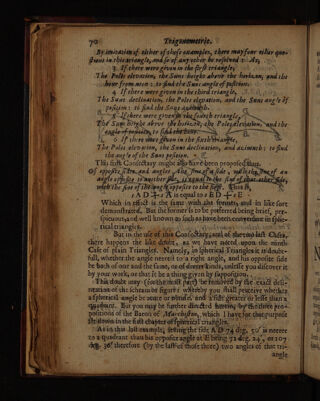 70 Trigonometrie.
By imitation of either of these examples, there may four other questions in this triangle, and so of any other be resolved: As,
3 If there were given in the first triangle,
The Poles elevation, the Suns height above the horizon, and the
hour from noon: to find the Suns angle of position.
4 If there were given in the third triangle,
The Suns declination, the Poles elevation, and the Suns angle of
position: to find the Suns azimuth.
5 If there were given in the fourth triangle,
The Suns height above the horizon, the Poles elevation, and the
angle of position, to find the
6 If there were given in the sixth triangle,
The Poles elevation, the Suns declination, and azimuth: to find
the angle of the Suns position.
This first Consectary might also have been proposed thus.
Of opposite sides and angles, the sine of a side, with the sine of an
angle opposite to another side, is equal to the sine of that other side,
with the sine of the angle opposite to the first. That is,
is equal to
Which in effect is the same with the former, and in like sort
demonstrated. But the former is to be preferred being brief, perspicuous, and well known to such as have been conversant in sphericall triangles.
But in the use of this Consectary, and of the two last Cases,
there happens the like doubt, as we have noted upon the ninth
Case of plain Triangles. Namely, in spherical Triangles it is doubtfull, whether the angle neerest to a right angle, and his opposite side
be both of one and the same, or of divers kinds, unlesse you discover it
by your work, or that it be a thing given by supposition.
This doubt may (for the most part) be removed by the exact delineation of the scheam or figure: whereby you shall perceive whether
a sphericall angle be acute or obtuse, and a side greater or lesse than a
quadrant. But you may be further directed herein by the three propositions of the Baron of Marchiston, which I have for that purpose
set down in the first chapter of sphericall triangles.
As in this last example, seeing the side AD 74 deg. 50' is neerer
to a quadrant than his opposite angle at B being 72 deg. 24', or 107
deg. 36' therefore (by the last of those three) two angles of that tri-
angle